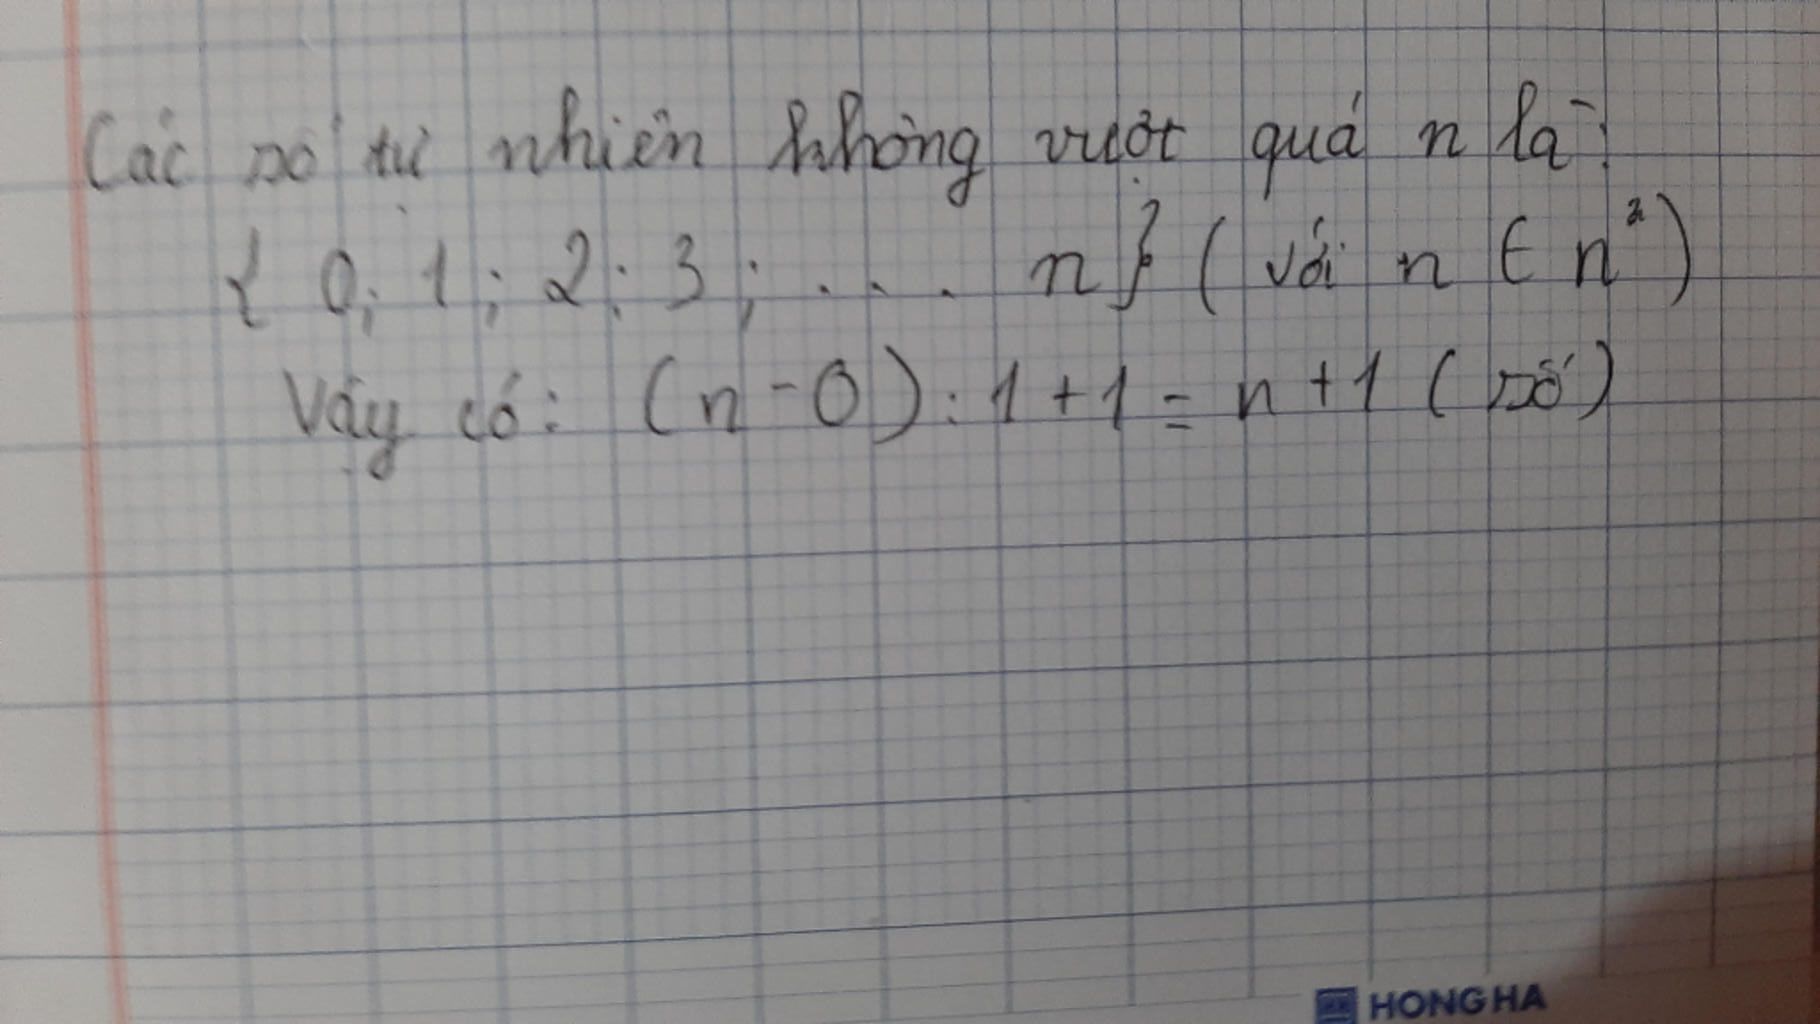 Các số tự nhiên không vượt quá n là:
{ 0; 1; 2; 3; ... n} (với n ∈ n²)
Vậy có: (n - 0) : 1 + 1 = n + 1 (số)
HONG HA